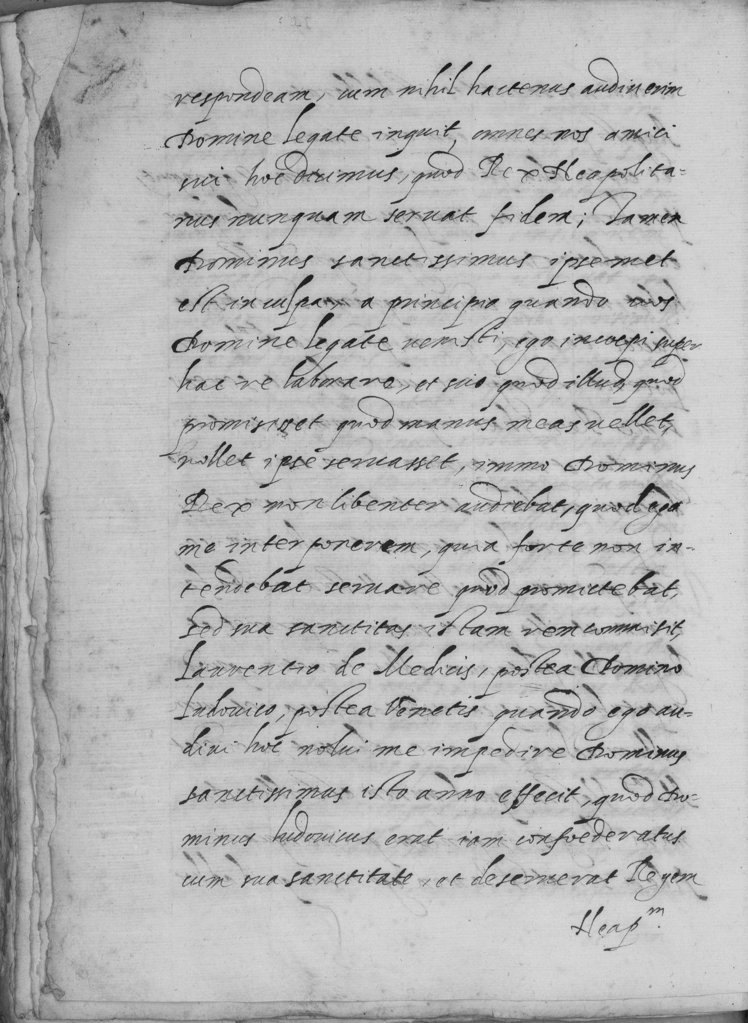 respondeam, cum nihil hactenus audiuerim
Domine legate inquit, omnes nos amici
sui hoc dicimus, quod Rex Neapolita-
nus nunquam seruat fidem; Tamen
Dominus sanctissimus ipsemet
est in culpa, a principio quando vos
Domine legate venisti, ego incoepi super
hac re laborare, et scio quod illud, quod
promisisset quod manus meas vellet,
nollet ipse seruasset, immo Dominus
Rex non libenter audiebat, quod ego
me interponerem, quia forte non in-
tendebat seruare quod promittebat,
sed sua sanctitas istam rem commisit,
Laurentio de Medicis, postea Domino
Ludouico, postea Venetis quando ego au-
diui hoc nolui me impedire Dominus
sanctissimus isto anno effecit, quod Do-
minus ludouicus erat iam confoederatus
cum sua sanctitate, et deseruerat Regem
Neap.m